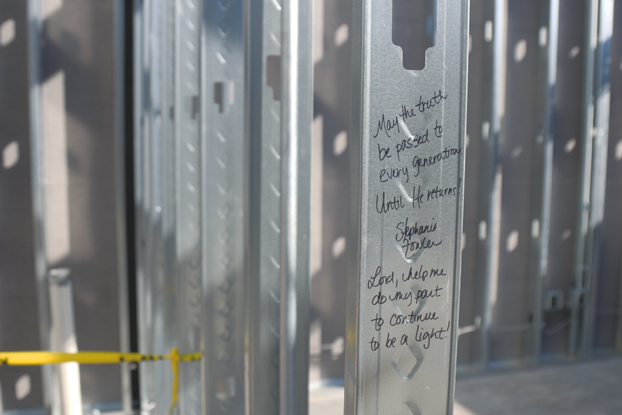 May the truth
be passed to
every generation
Until He returns!
Stephanie
Fowler
Lord, help me
do my part
to continue
to be a light!